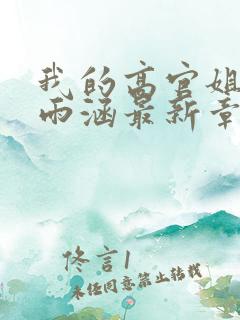 我的高官姐
雨涵最新章
佟言1
未经同意禁止转载